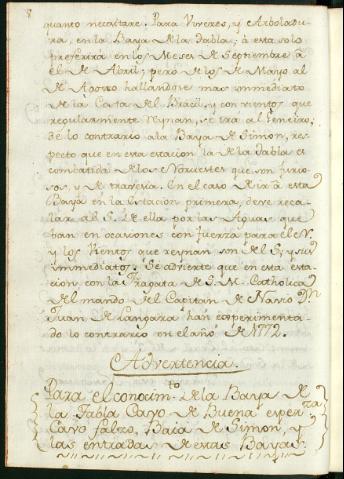 8
quanto necesitare. Para Viveres, y Arboladu-
ra, en la Baya de la Tabla; á esta solo
preferirá en los Meses de Septiembre á
el de Abril; pero de los de Mayo al
de Agosto hallandose mas immediato
de la Costa del Bracil, y con vientos que
regularmente Reynan, se irá al Jeneiro;
de lo contrario ala Baya de Simon, res-
pecto que en esta estacion la de la Tabla es
combatida de los Noruestes que son furio-
sos, y de travesia. En el caso de ir á esta
Baya en la Estacion primera, deve reca-
lar al S. de ella por las Aguas que
ban en ocaciones con fuerza para el N.
y los Vientos que reynan son del S. y sus
immediatos. Se advierte que en esta esta-
cion, con la Fragata de S. M. Catholica
del mando del Capitan de Navio Dn
Juan de Langara han experimenta-
do lo contrario en el año de 1772.
Advertencia.
Para el conocim.to de la Baya de
la Tabla Cavo de Buena esper.za
Cavo falzo, Baia de Simon, y
las entradas de estas Bayas.